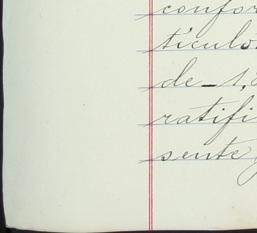 confor
tículo
de 1,
ratifi
sente